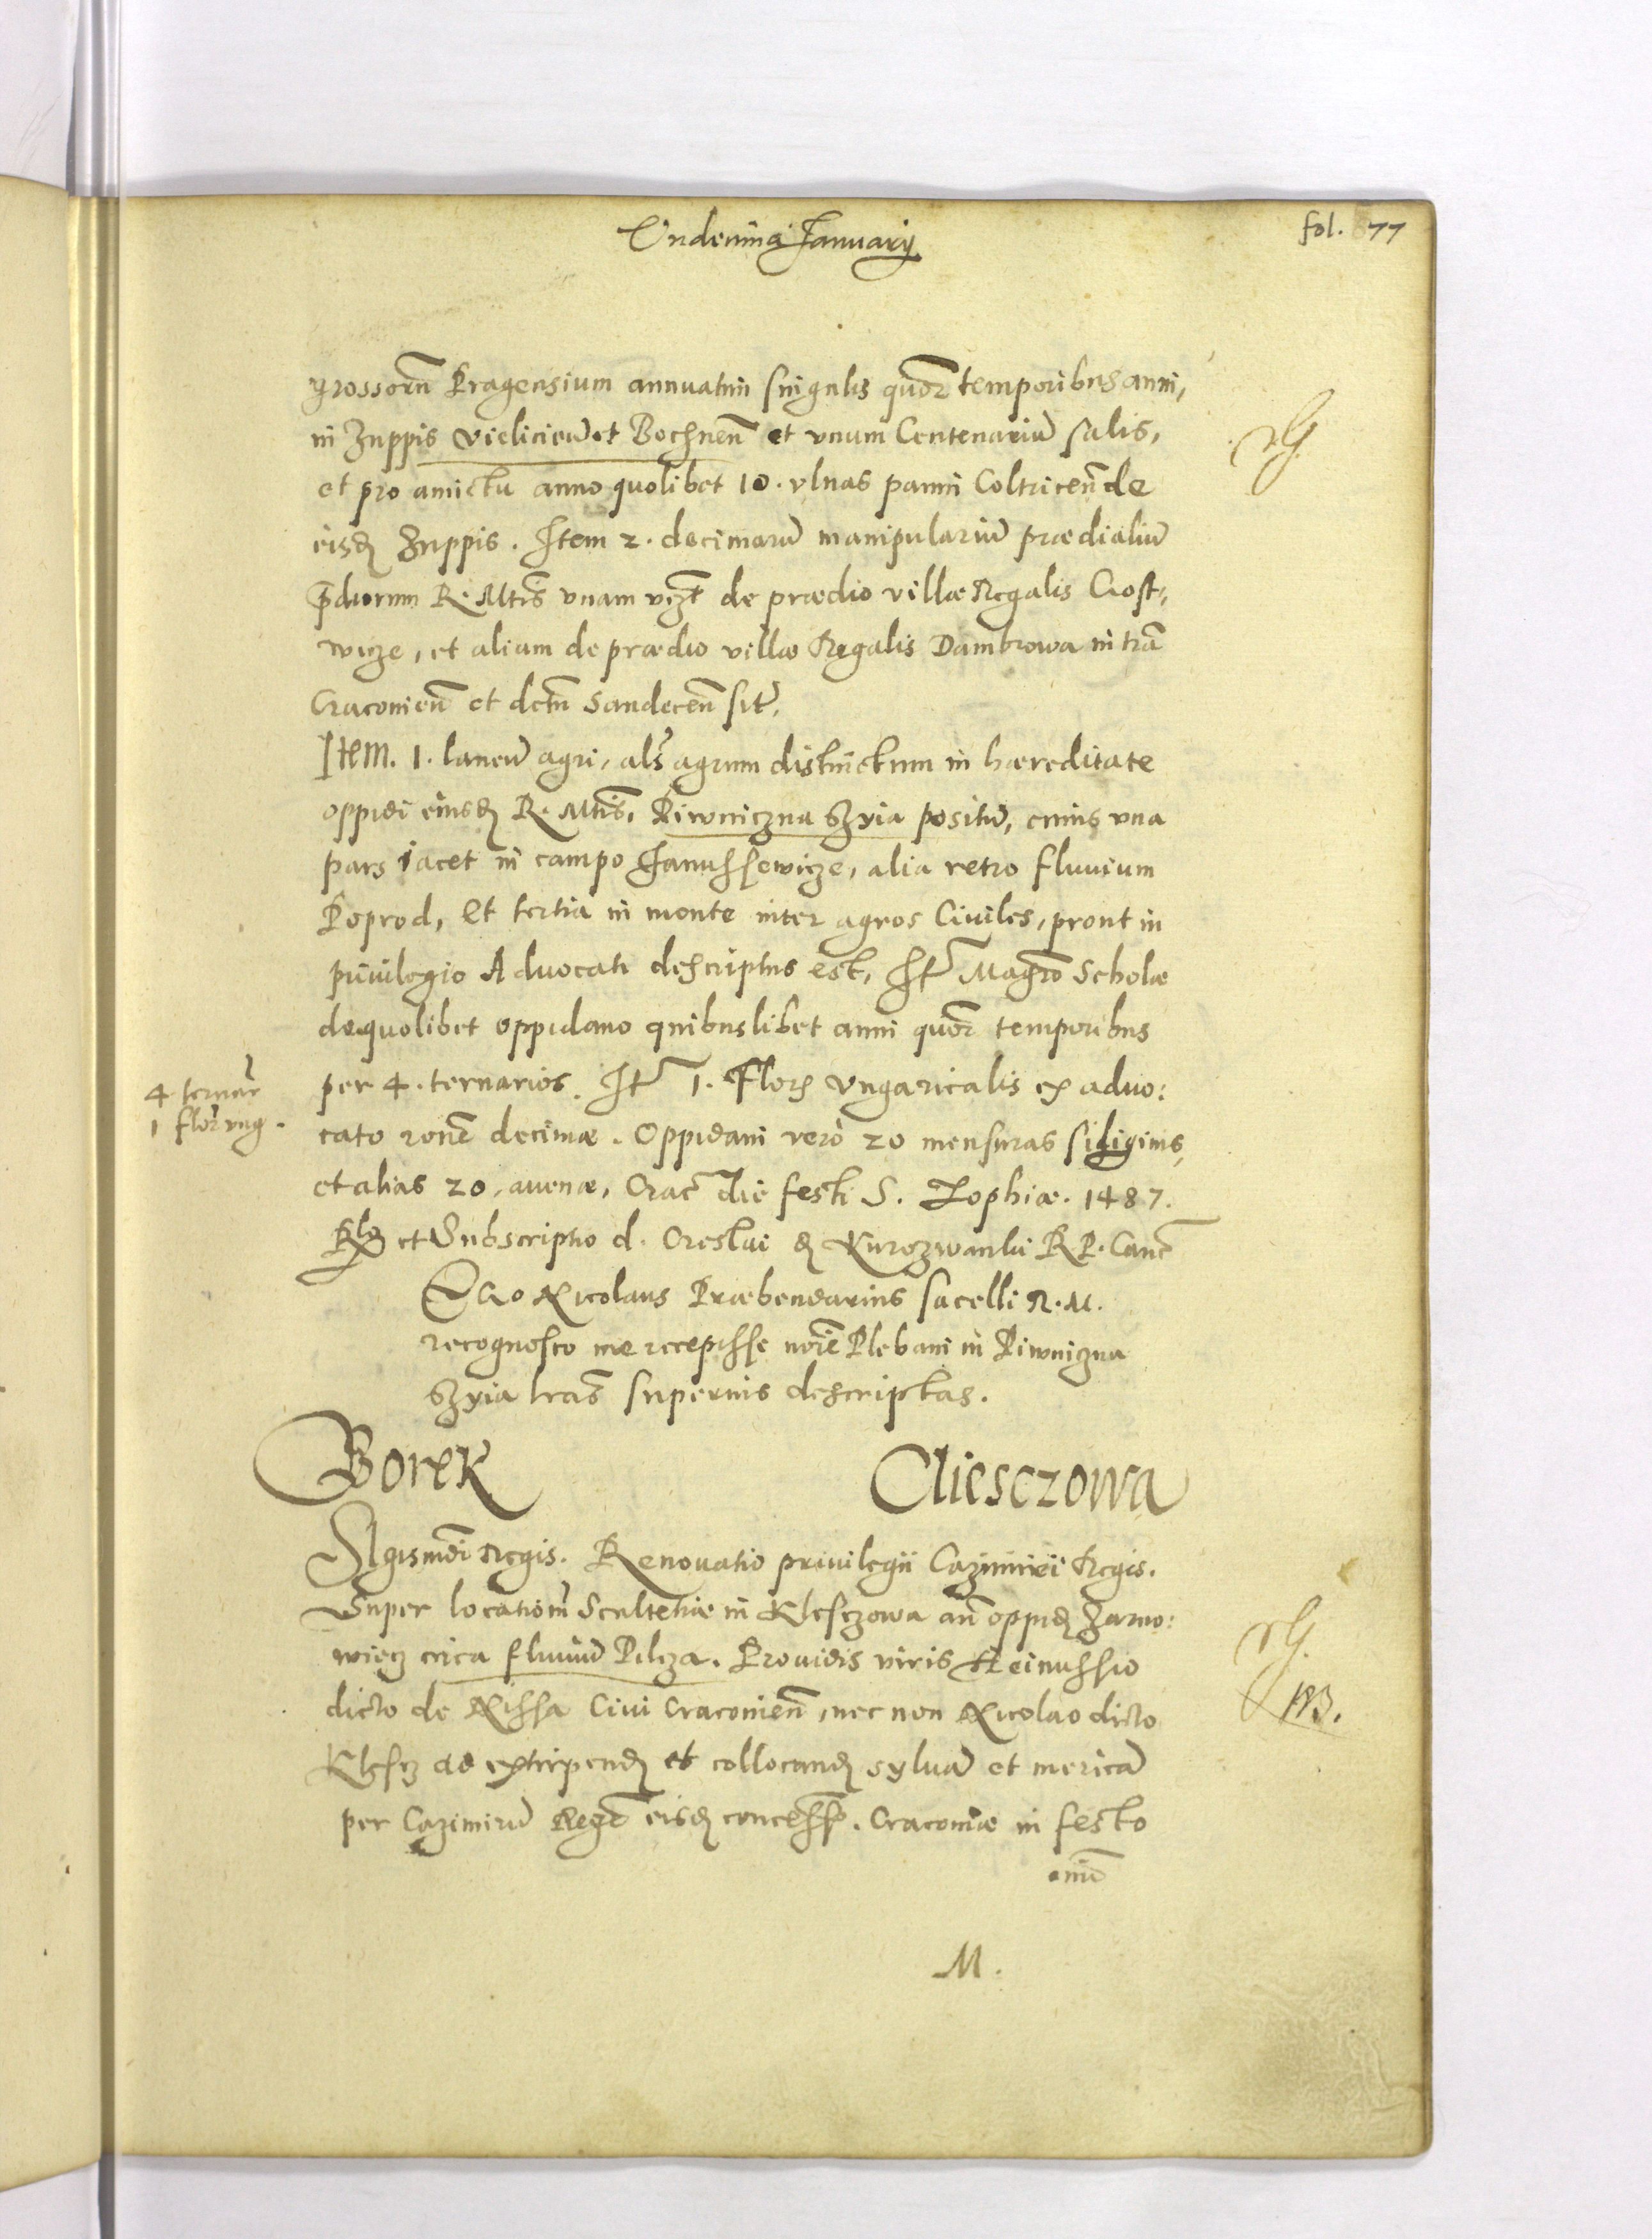 Undecima January
fol. 77
grossorū Pragensium annuatim singulis quor̄ temporibus anni,
in Zuppis vieliciēn et Bochnēn et vnum Centenariū salis,
et pro amictu anno quolibet 10. vlnas panni Coltricēn de
eisd Zuppis. Item 2. decimarū manipulariū prædialiū
prædiorum R. Mtis vnam vizt de prædio villæ Regalis Crost,
wicze, et aliam de prædio villæ Regalis Dambrowa in trā
Cracouiēn et dctū Sandecēn sitr̄.
Item. 1. laneū agri, als agrum distinctum in hæreditate
oppidi eiusd R. Mtis, Piwniczna Szyia positū, cuius vna
pars iacet in campo Janussewicze, alia retro fluuium
Poprod, Et tertia in monte inter agros Ciuiles, prout in
priuilegio Aduocati descriptus est, Itr̄ Magrō Scholæ
de quolibet oppidano quibuslibet anni quor̄ temporibus
4 ternar
1 flor vng.
per 4. ternarios. Itr̄ 1. Flor vngaricalis ex aduo:
cato rone decimæ. Oppidani verò 20 mensuras siliginis,
et alias 20, auenæ, Crac̄ die festi S. Zophiæ. 1487.
Rlo et Subscriptio d. Creslai d Kurozwanki R P. Canc̄
Ego Nicolaus Præbendarius sacelli R. M.
recognosco me recepisse noīe Plebani in Piwniczna
Szyia lras superius descriptas.
Borek Cliesczowa
Sigismdi Regis. Renouatio priuilegii Cazimiri Regis.
Super locationē Scultetiæ in Klesczowa añ oppid Zarno:
wiecz circa fluuiū Pilcza. Prouidis viris Heinussio
dicto de Nissa Ciui Cracouiēn, nec non Nicolao dicto
Klescz ad extirpend et collocand syluā et mericā
per Cazimirū Regē eisd concess. Cracouiæ in festo
omiū
M.